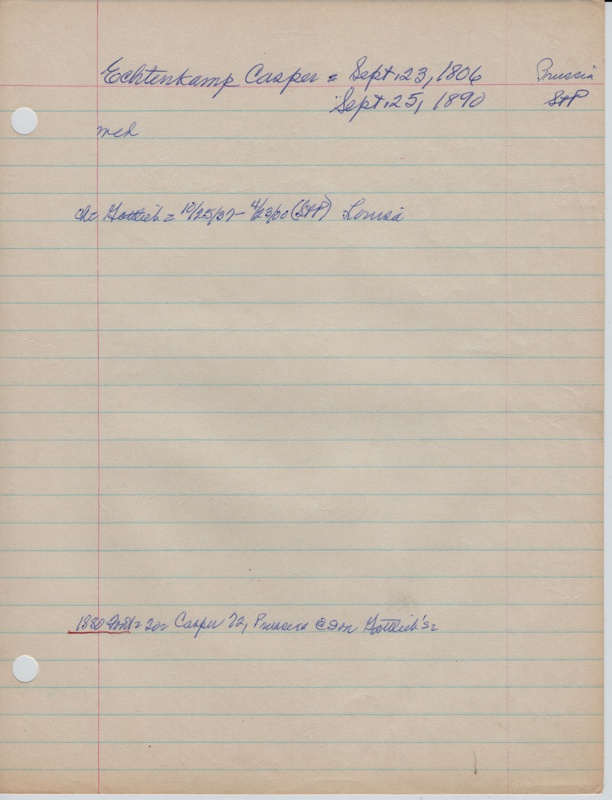 Echtenkamp Casper = Sept. 23, 1806 Prussia
Sept. 25, 1890 StP
md
Ch= Gottlieb = 10/25/37- 4/23/00 (StP) Louisa
1880 Casper 72, Prussia @ son Gottlieb's=